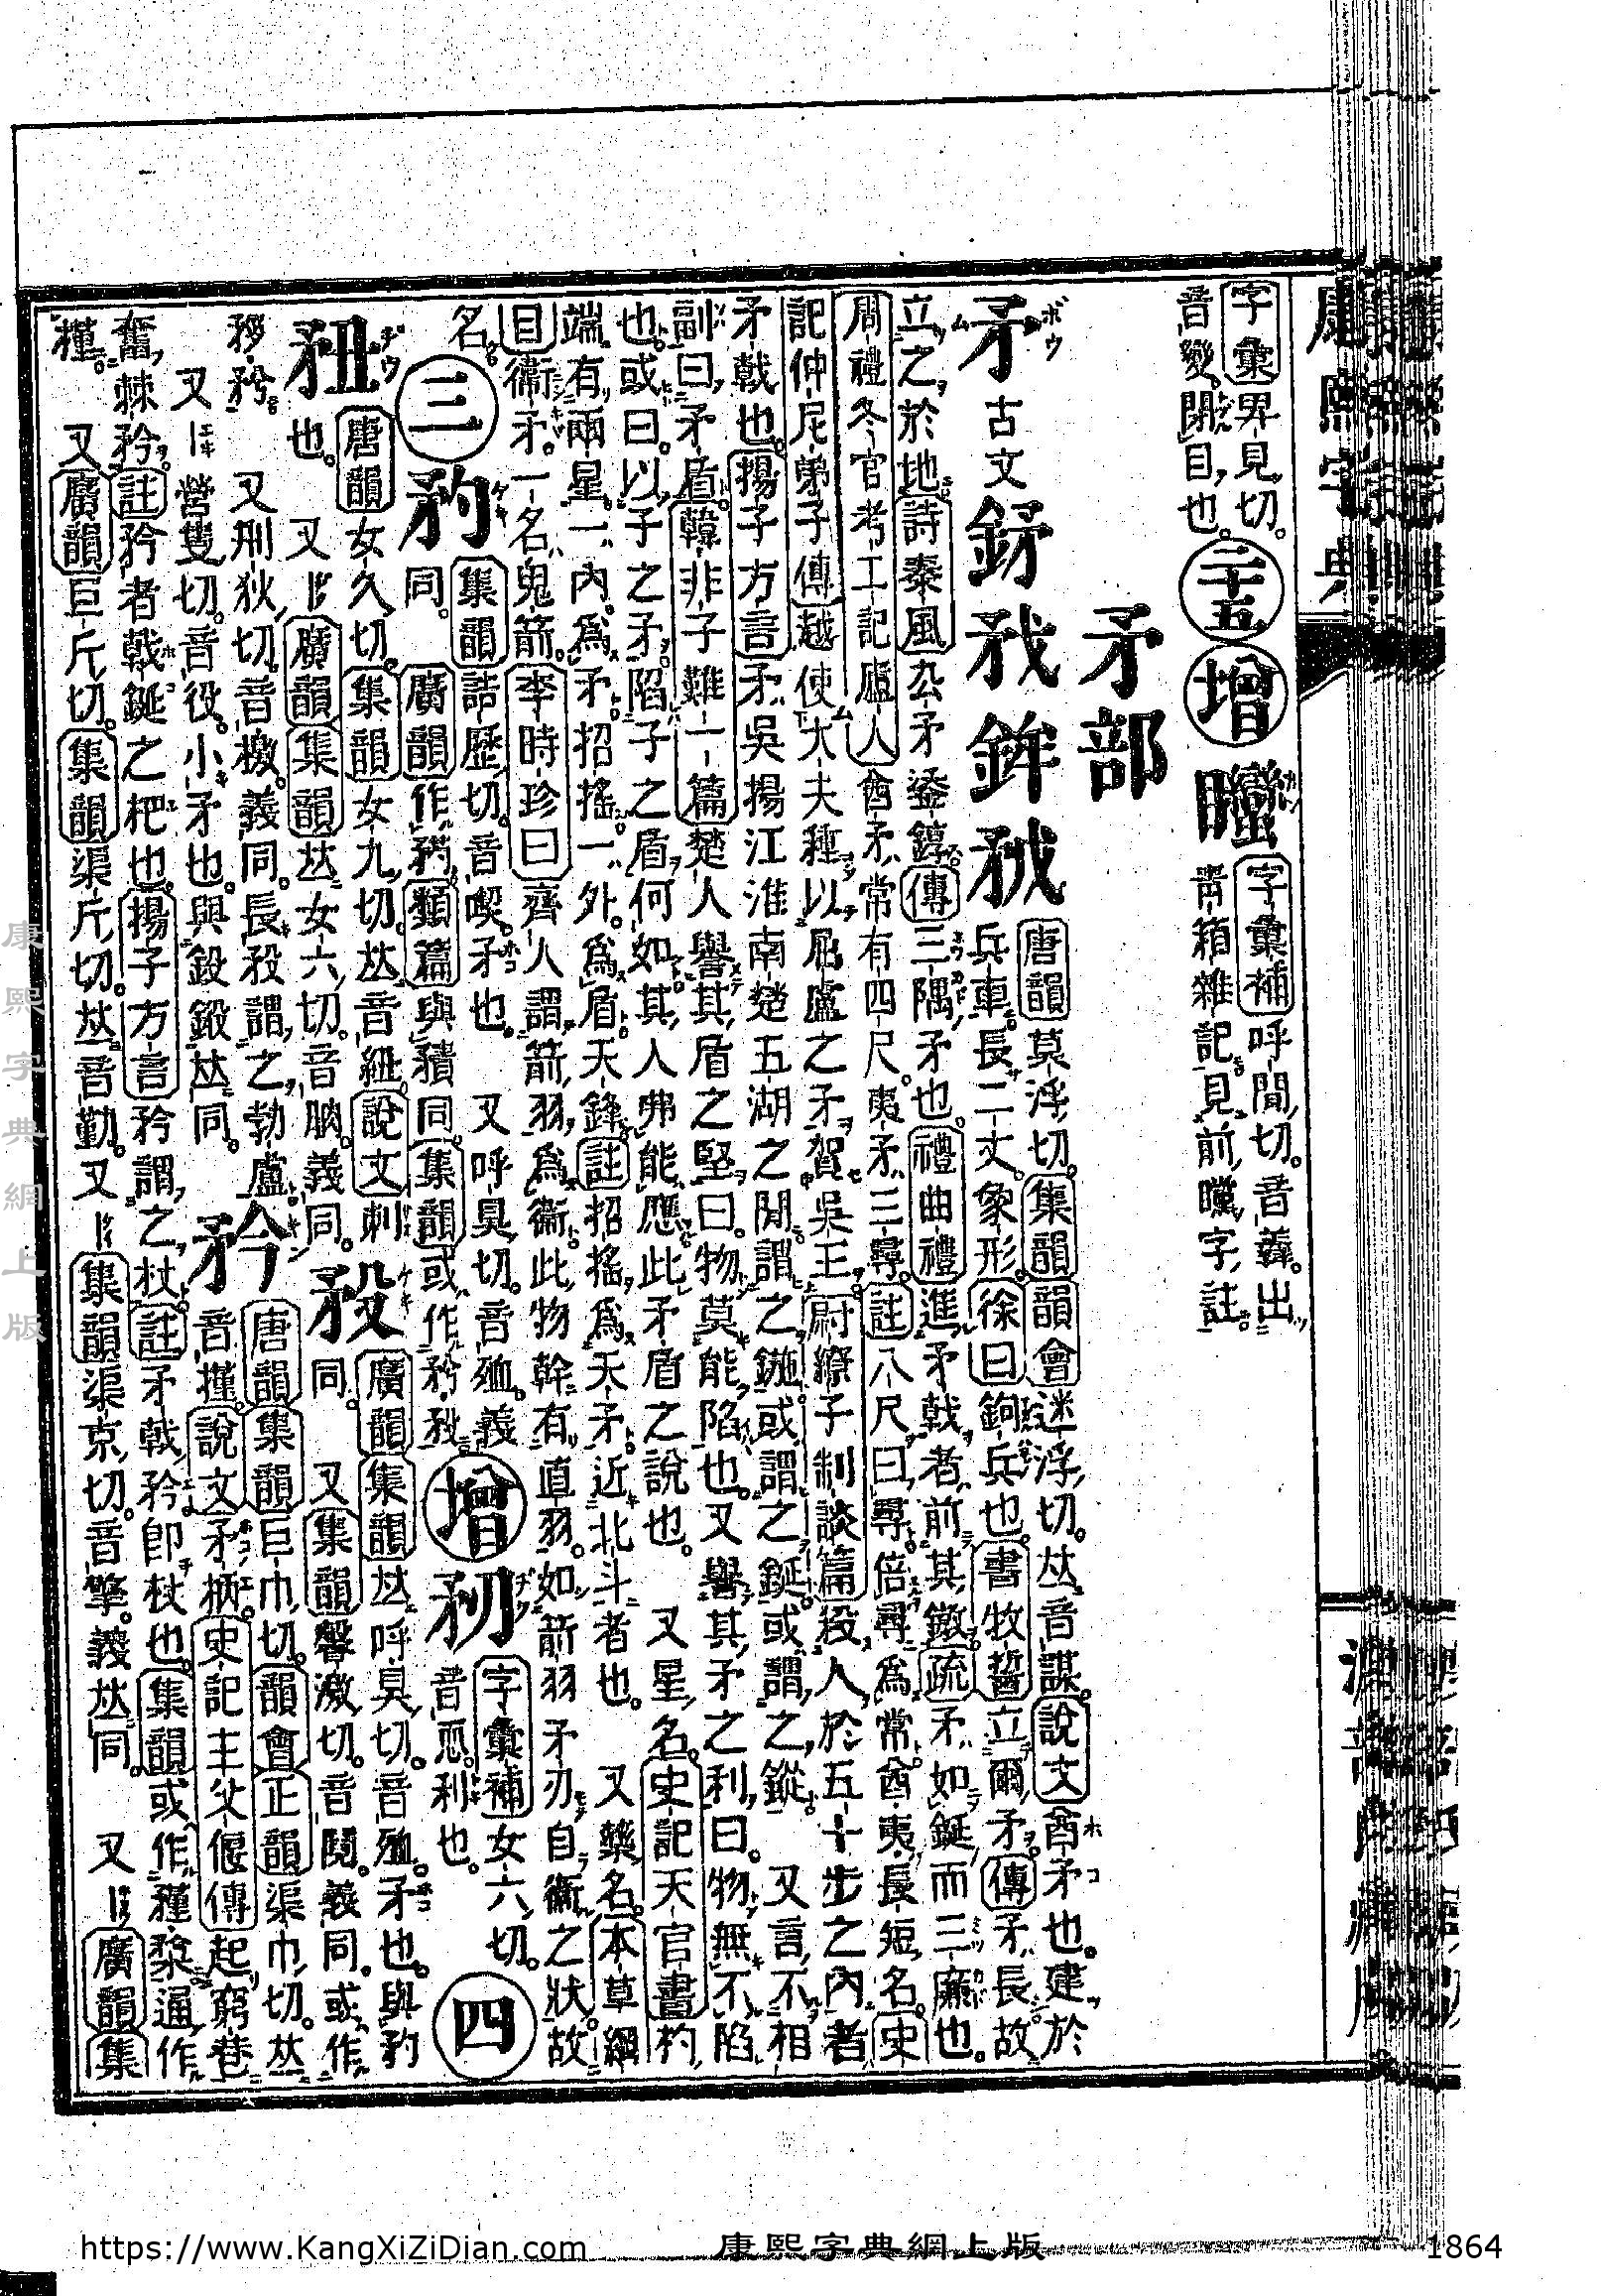 康熙字典
字彙畀見切
音變閉目也
二十五
增
字彙補呼閒切音㬢出
靑箱雜記見前矘字註
矛部
矛
古文
唐韻莫浮切集韻韻會迷浮切𠀤音謀說文酋矛也建於
兵車長二丈象形徐曰鉤兵也書牧誓立爾矛傳矛長故
立之於地詩秦風厹矛鋈錞傳三隅矛也禮曲禮進矛戟者前其鐓疏矛如鋋而三廉也
周禮冬官考工記廬人酋矛常有四尺夷矛三尋註八尺曰尋倍尋爲常酋夷長短名史
記仲尼弟子傳越使大夫種以屈盧之矛賀吳王尉繚子制談篇殺人於五十步之內者
矛戟也揚子方言矛吳揚江淮南楚五湖之閒謂之鍦或謂之鋋或謂之鏦 又言不相
副曰矛盾韓非子難一篇楚人譽其盾之堅曰物莫能陷也又譽其矛之利曰物無不陷
也或曰以子之矛陷子之盾何如其人弗能應此矛盾之說也 又星名史記天官書杓
端有兩星一內爲矛招搖一外爲盾天鋒註招搖爲天矛近北斗者也 又藥名本草綱
目衞矛一名鬼箭李時珍曰齊人謂箭羽爲衞此物幹有直羽如箭羽矛刃自衞之狀故
名
三
𥍟
集韻詰歷切音喫矛也 又呼臭切音殈義
同廣韻作䂊類篇與𥎰同集韻或作矝𥍝
增
字彙補女六切
音恧利也
四
䂇
唐韻女久切集韻女九切𠀤音紐說文刺
也 又廣韻集韻𠀤女六切音朒義同
廣韻集韻𠀤呼臭切音殈矛也與𥍟
同 又集韻馨激切音䦧義同或作
又刑狄切音檄義同長殺謂之勃盧
又營隻切音役小矛也與鈠鍛𠀤同
矜
唐韻集韻巨巾切韻會正韻渠巾切𠀤
音㨷說文矛柄史記主父偃傳起窮巷
奮棘矜註矜者戟鋋之杷也揚子方言矜謂之杖註矛戟矜卽杖也集韻或作䅖𥠻通作
㮚 又廣韻巨斤切集韻渠斤切𠀤音勤 又集韻渠京切音擎義𠀤同 又廣韻集
康熙字典網上版
https://www.KangXiZiDian.com
康熙字典網上版
1864